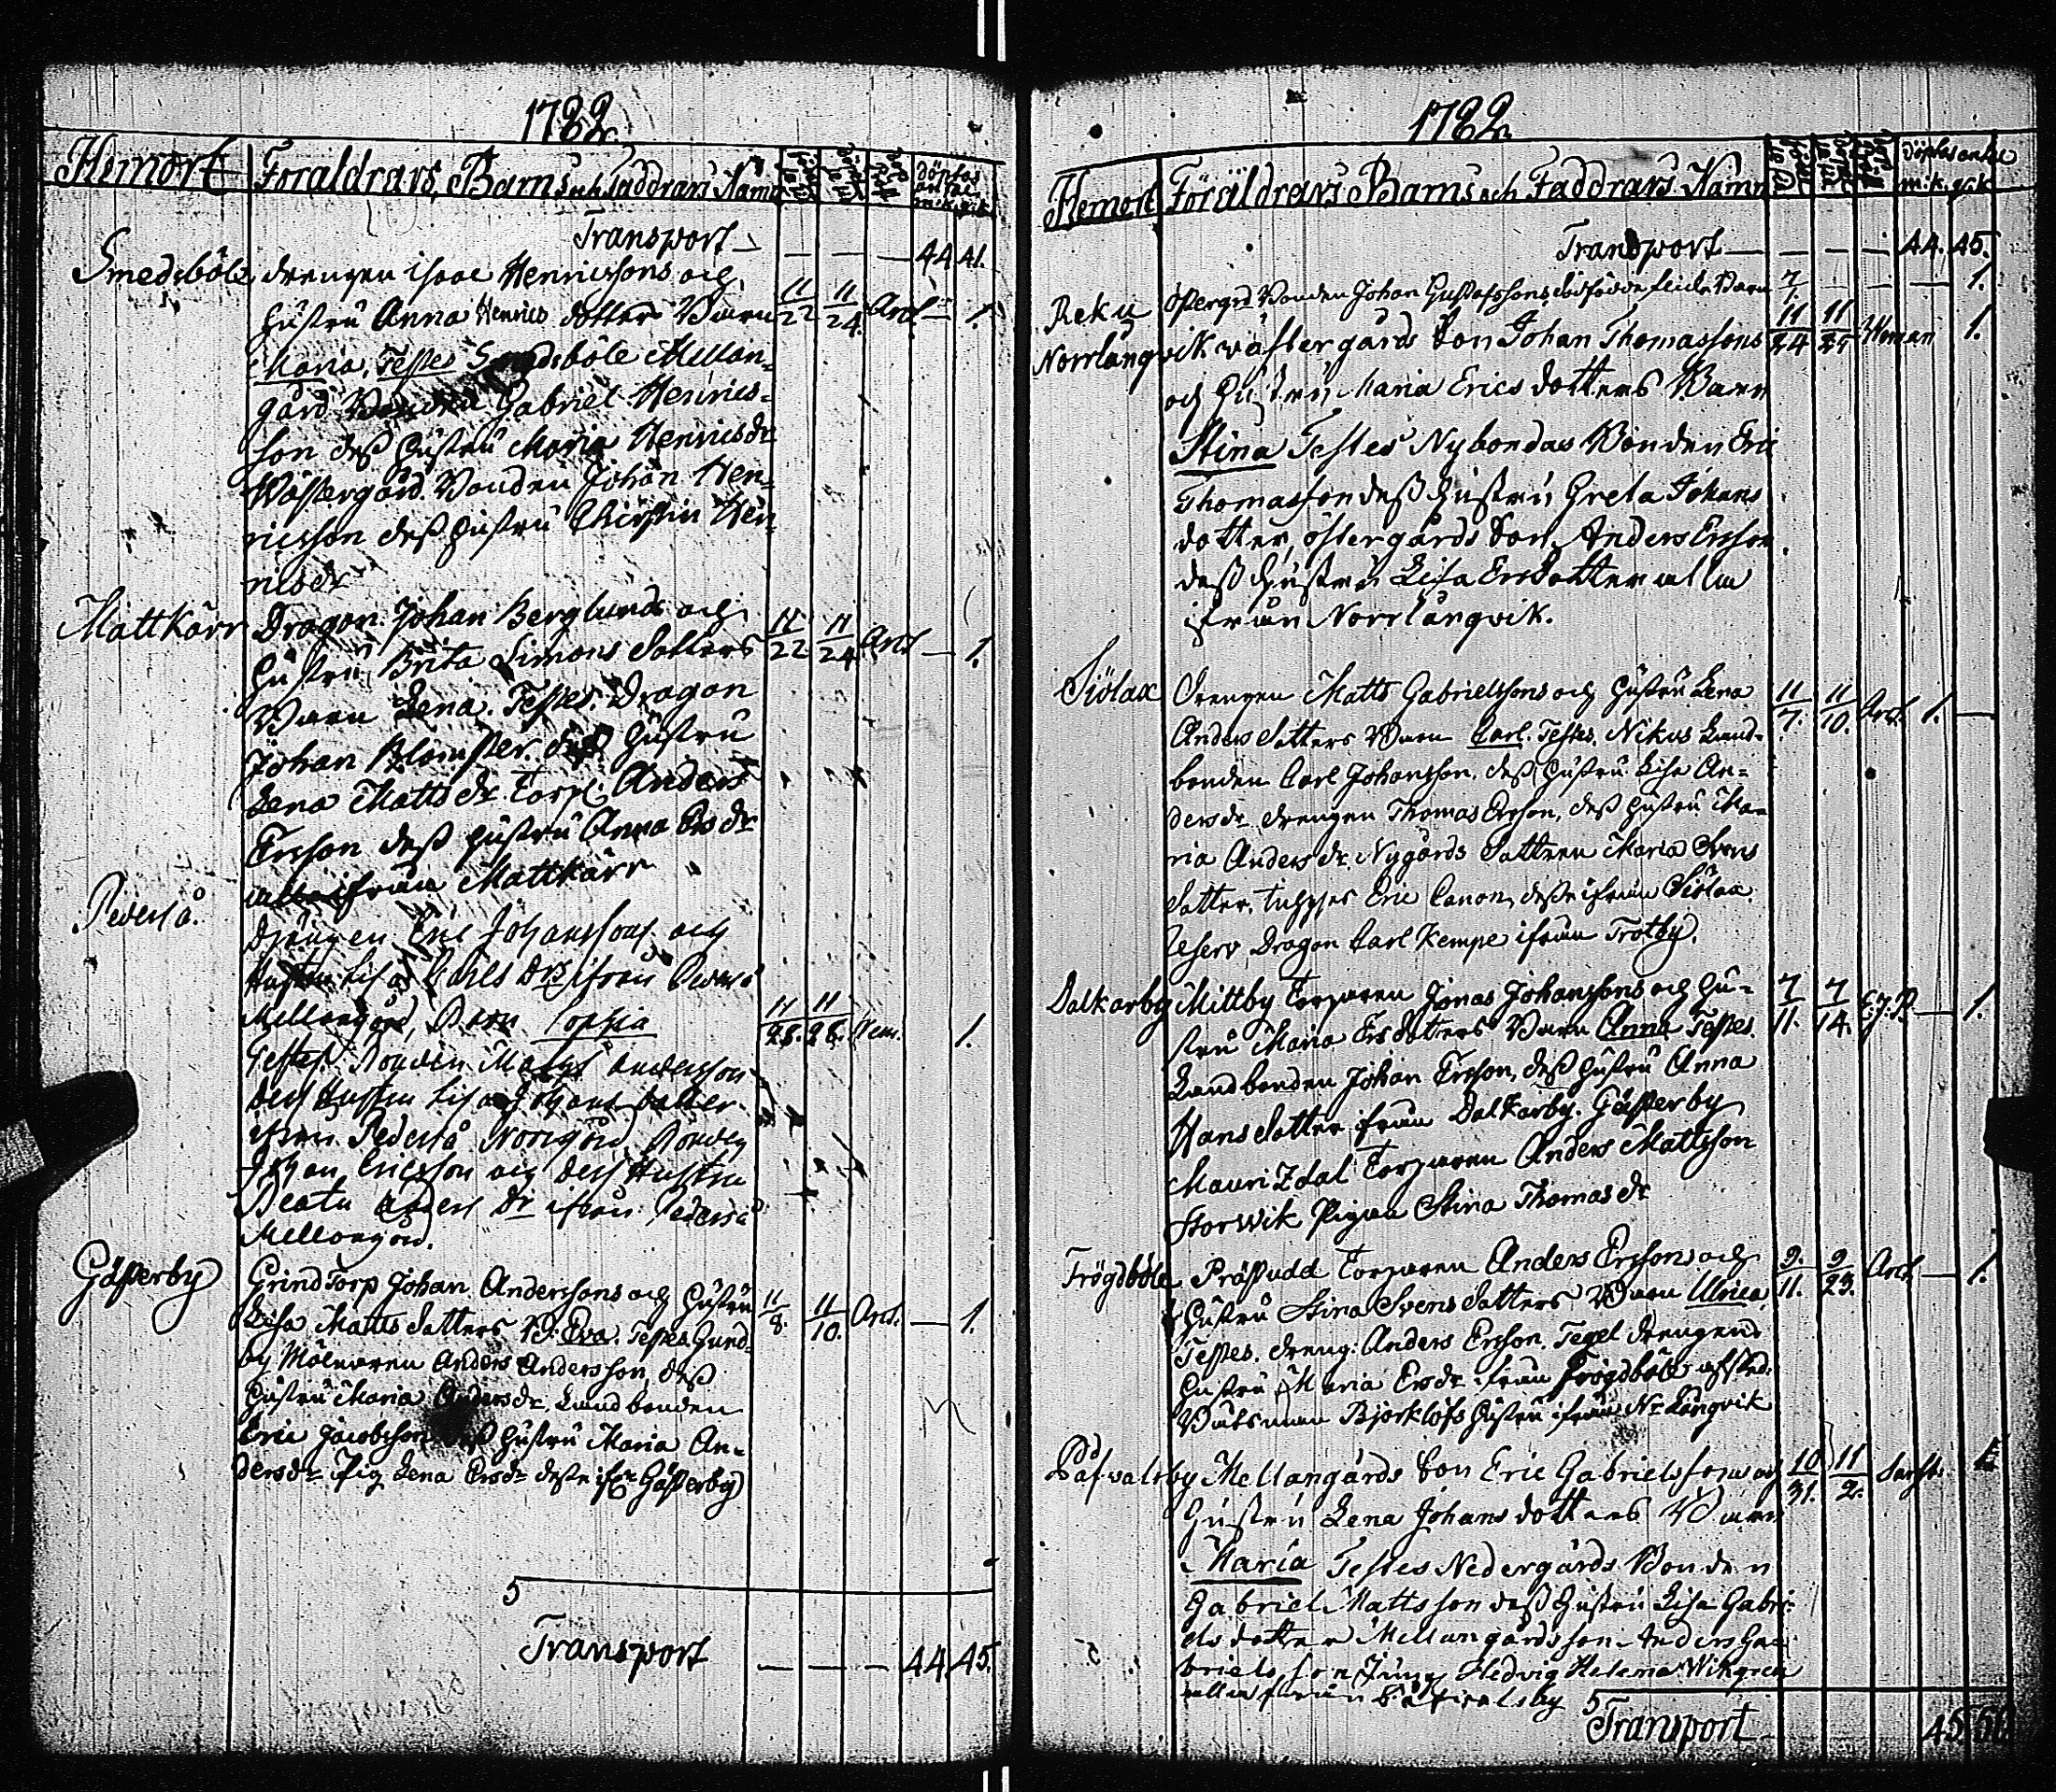 1782.
Hemort Foraldrars, Barns och Faddrars Namn döptas antal m.k. q.k.
Transport — — — — 44 41.
Smedsböle drengen Isaac Henricssons och
hustru Anna Henrics dotters Barn 11/22 11/24. Arct — 1.
Maria, Testes Smedsböle Mellan-
gård Bonden Gabriel Henrics-
son dess hustru Maria Henricsdr
Wästergård. Bonden Johan Hen-
ricsson dess hustru Christin Hen-
ricsdr
Mattkärr Dragon. Johan Berglunds och 11/22 11/24. Arct — 1.
hustru Brita Simons dotters
Barn Lena. Testes. Dragon
Johan Blomster. dess hustru
Lena Matts dr Torp. Anders
Ersson dess hustru Anna Ers dr
alla ifrån Mattkärr
Pederså. Drängen Eric Johanssons och
Hustru Lisa Carls Drs ifrån Pederså
Mellangård, Barn Sophia 11/26. 11/28. 1.
Testes. Bonden Matts Andersson
dess Hustru Lisa Johans dotter
ifrån Pederså Norrgård Bonden
Johan Ericsson och dess Hustru
Beata Anders Dr ifrån Pederså
Mellangård.
Gästerby Grindtorp Johan Anderssons och Hustru
Lisa Matts dotters B. Eva. Testes Gund- 11/8. 11/10. Arct. — 1.
by Mölnaren Anders Andersson, dess
hustru Maria Andersdr, Landbonden
Eric Jacobsson dess hustru Maria An-
dersdr Pig. Lena Ersdr desse ifr. Gästerby
5
Transport — — — 44. 45.
1782.
Hemort Föräldrars Barns och Faddrars Namn döptas antal m.k. q.k.
Transport — — — — 44. 45.
Reku Östergrd Bonden Johan Gustafssons dödfödde flicke Barn 7/1. — — — 1.
Norrlångvik wästergårds son Johan Thomassons 11/24 11/25 Homan 1.
och hustru Maria Erics dotters Barn
Stina Testes Nybondas Bonden Eric
Thomasson dess hustru Greta Johans
dotter, östergårds son Anders Ersson
dess hustru Lisa Ersdotter alla
ifrån Norrlångvik.
Siölax Drengen Matts Gabrielssons och hustru Lena 11/7. 11/10. Arct. 1. —
Anders dotters Barn Carl. Testes. Nikus Land-
bonden Carl Johansson, dess hustru Lisa An-
ders dr drengen Thomas Ersson, dess hustru Ma-
ria Anders dr Nygårds dottren Maria Svens
dotter, Eric Canon, desse ifrån Siölax.
Reserv Dragon Carl Kempe ifrån Trotby.
Dalkarby Mittby Torparen Jonas Johanssons och hu- 7/11. 7/14. — 1.
stru Maria Ersdotters Barn Anna Testes.
Landbonden Johan Ersson, dess hustru Anna
Hans dotter ifrån Dalkarby. Gästerby
Mauritzdal Torparen Anders Mattsson
Storwik Pigan Stina Thomas dr
Frögdböle Prästudd Torparen Anders Ersons och 9./11. 9/23. Arct. — 1.
hustru Stina Svens dotters Barn Ulrica,
Testes. dreng: Anders Ersson. Tegel drengens
hustru Maria Ersdr ifrån Frögdböle afsked.
Båtsman Björklöfs hustru ifrån Nr Långvik
Båfvalsby Mellangårds son Eric Gabrielssons och 10/31. 11/2. 1.
hustru Lena Johans dotters Barn
Maria Testes Nedergårds Bonden
Gabriel Mattsson dess hustru Lisa Gabri-
els dotter Mellangårds son Anders Ga-
briels son Jungf Hedvig Helena Wikgren
alla ifrån Båfvalsby
5
Transport 45 50